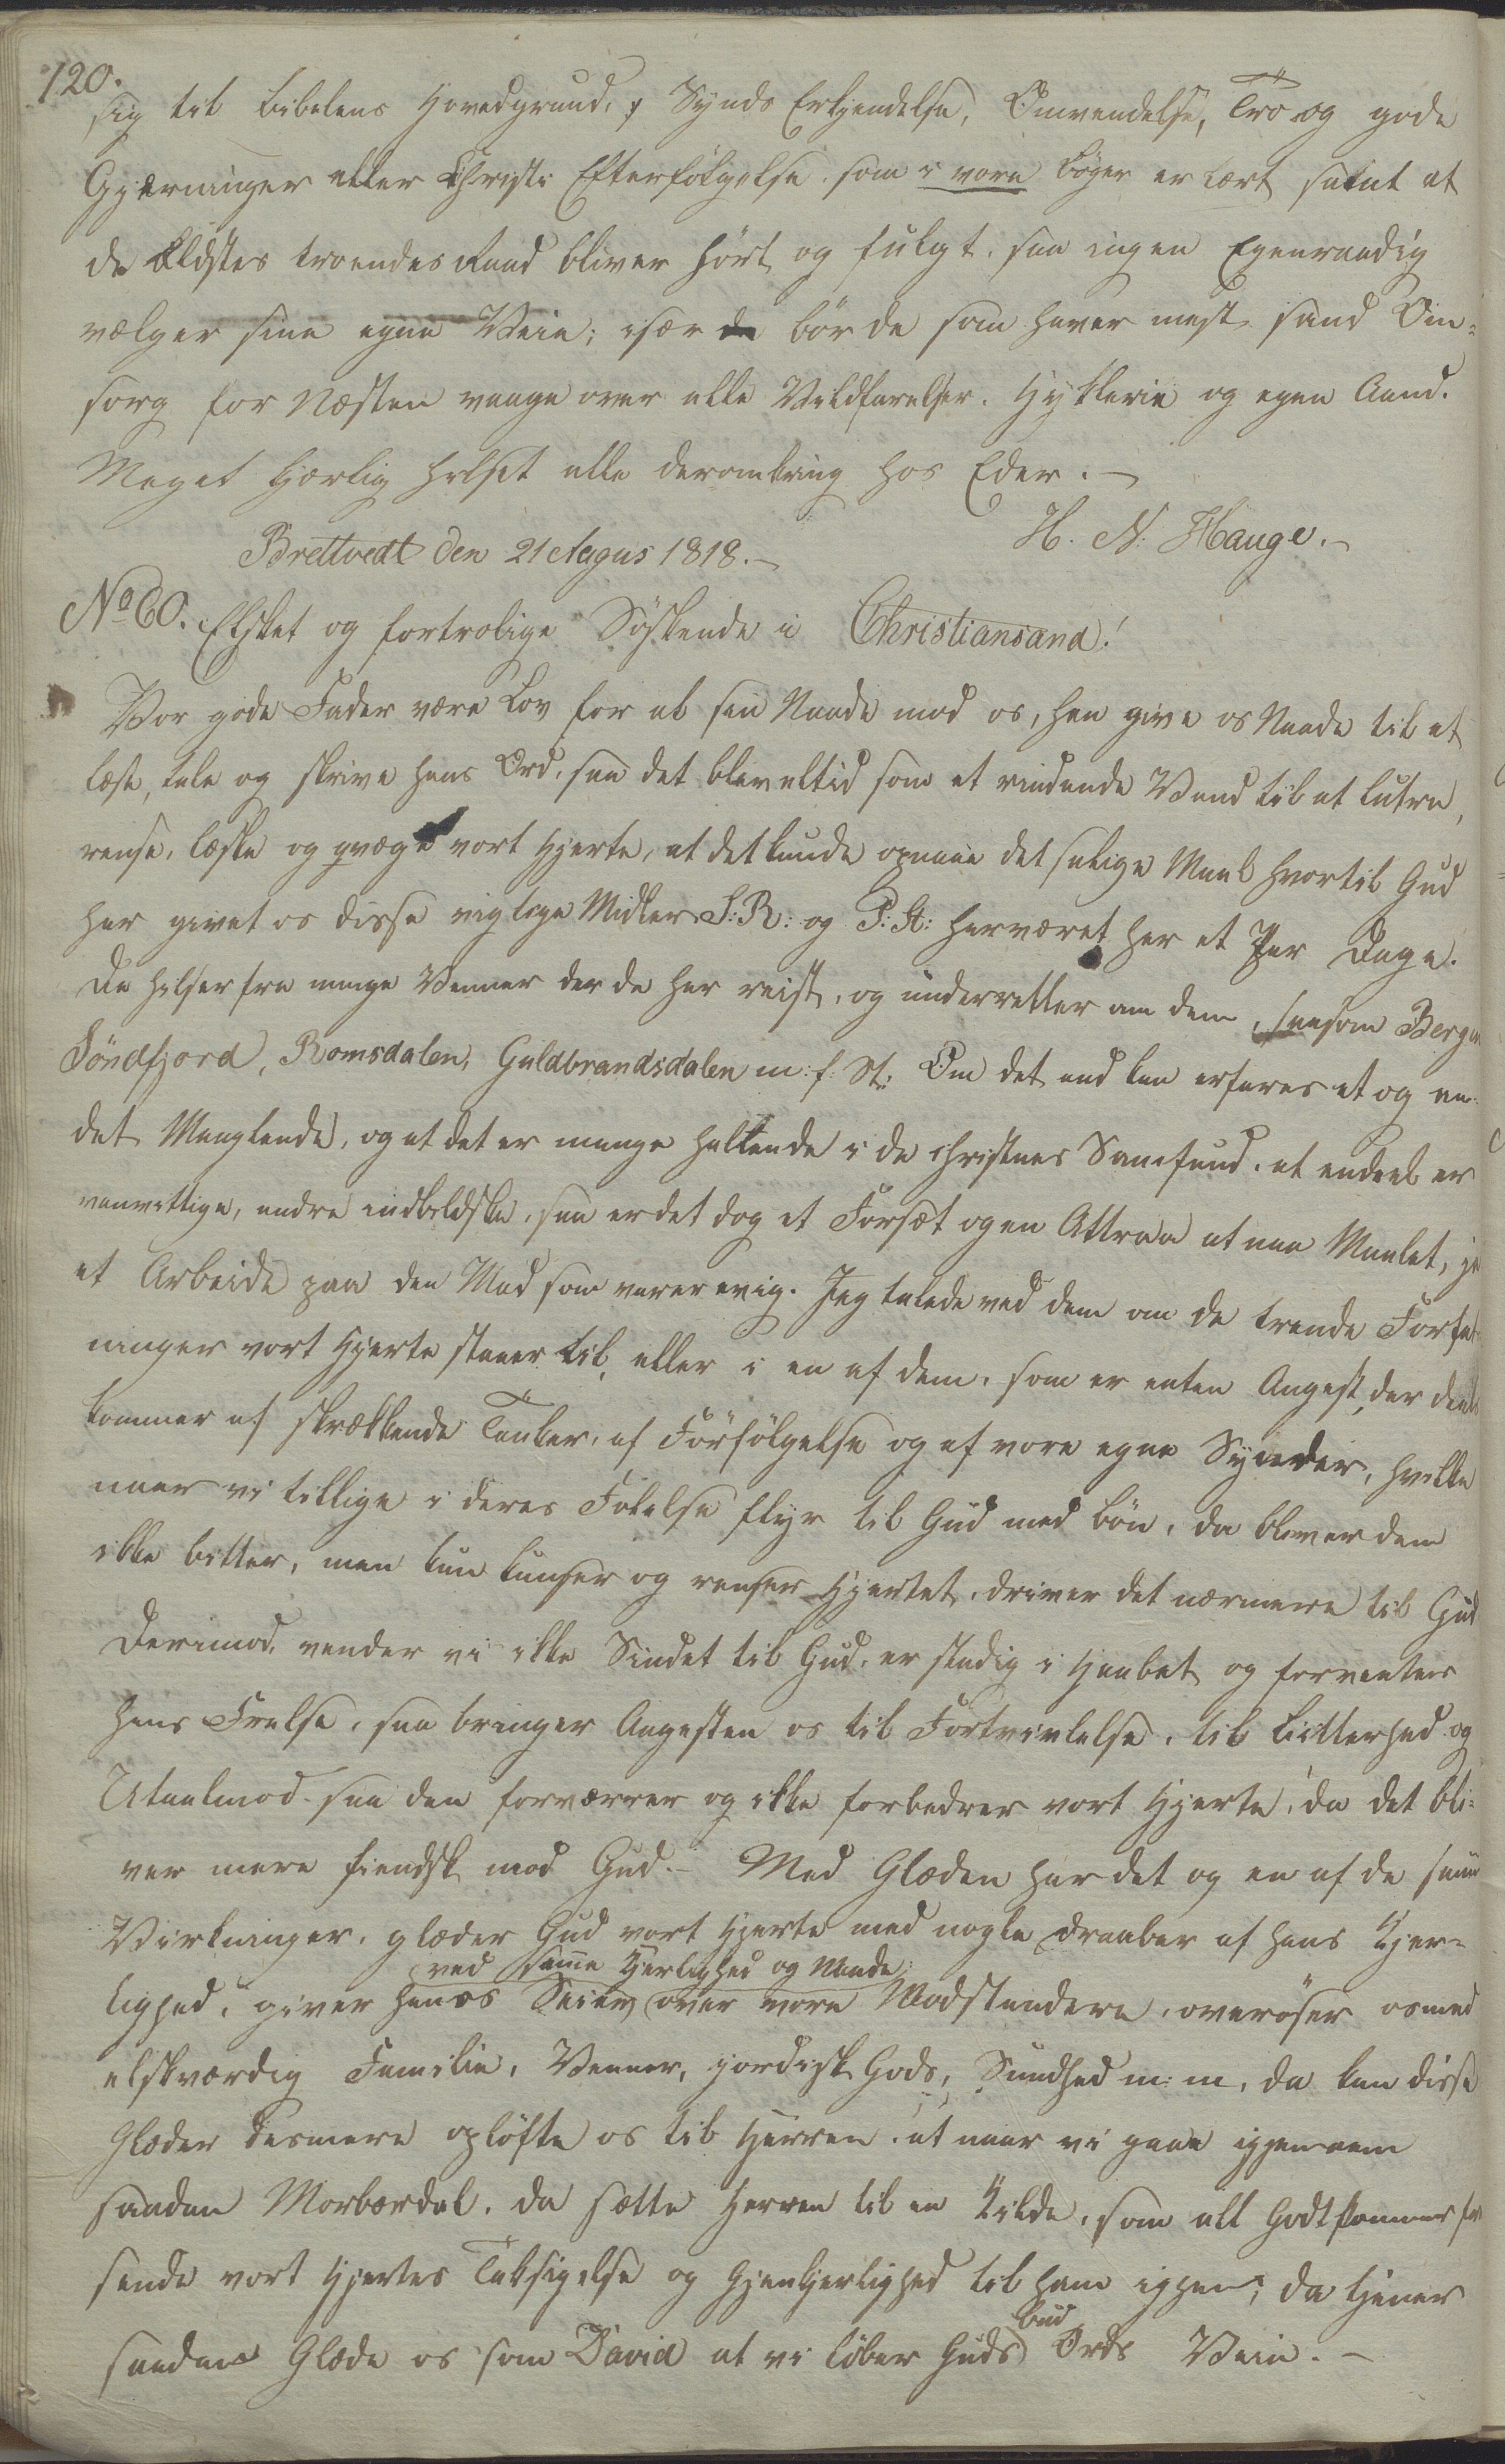 120.
sig til Bibelens Hovedgrund, ɔ: Synds Erkjendelse, Omvendelse, Tro og gode
Gjærninger eller Christi Efterfölgelse som i vore Böger er lært samt at
de Ældstes troendes Raad bliver hört og fulgt, saa ingen Egenraadig
vælger sine egne Veie; især de bör de som haver mest sand Om-
sorg for Næsten vaage over alle Vildfarelser, Hyklerie og egen Aand.
Meget kjærlig hilset alle deromkring hos Eder. –
H. N: Hauge. –
Brettvedt den 21 Augus 1818. –
No 60. Elsket og fortrolige Söskende i Christiansand!
Vor gode Fader være Lov for al sin Naade mod os, han give os Naade til at
læse, tale og skrive hans Ord, saa det blev altid som et rindende Vand til at lutre,
rense, læske og qvæge vort Hjerte, at det kunde opnaae det salige Maal hvortil Gud
har givet os disse vigtige Midler. S: R: og P: H: har været her et Par Dage.
De hilser fra mange Venner der de har reist, og underretter om dem, saasom Bergen
Söndfjord, Romsdalen, Guldbrandsdalen m: f: St: Om det end kan erfares et og an-
det Manglende, og at det er mange haltende i de christnes Samfund, at endeel er
vanvittige, andre indbildske, saa er det dog et Forsæt og en Attraa at naa Maalet, ja
et Arbeide paa den Mad som varer evig. Jeg talede ved dem om de trende Forfat
ninger vort Hjerte staaer til, eller i en af dem, som er enten Angest, der deels
kommer af skrækkende Tanker, af Forfölgelse og af vore egne Synder, hvilke
naar vi tillige i deres Fölelse flyr til Gud med Bön, da bliver dem
ikke bitter, men kun lunser og renser Hjertet, driver det nærmere til Gud
Derimod, vender vi ikke Sindet til Gud, er stadig i Haabet og forventer
hans Frelse, saa bringer Angesten os til Fortvivlelse, til Bitterhed og
Utaalmod saa den forværrer og ikke forbedrer vort Hjerte, da det bli-
ver mere fiendsk mod Gud. – Med Glæden har det og en af de samme
Virkninger, glæder Gud vort Hjerte med nogle Draaber af hans Kjer-
ved samme Kjerlighed og Naade
lighed, giver han os Seier over vore Modstandere, overöser os med
elskværdig Familie, Venner, jordisk Gods, Sundhed m: m, da kan disse
Glæder desmere oplöfte os til Herren, at naar vi gaae igjennem
saadan Morbærdal, da sætte Herren til en Kilde, som alt Godt kommer fra
sende vort Hjertes Taksigelse og Gjenkjerlighed til ham igjen; da tjener
bud
saadan Glæde os som David at vi löber Guds Ords Veie. –